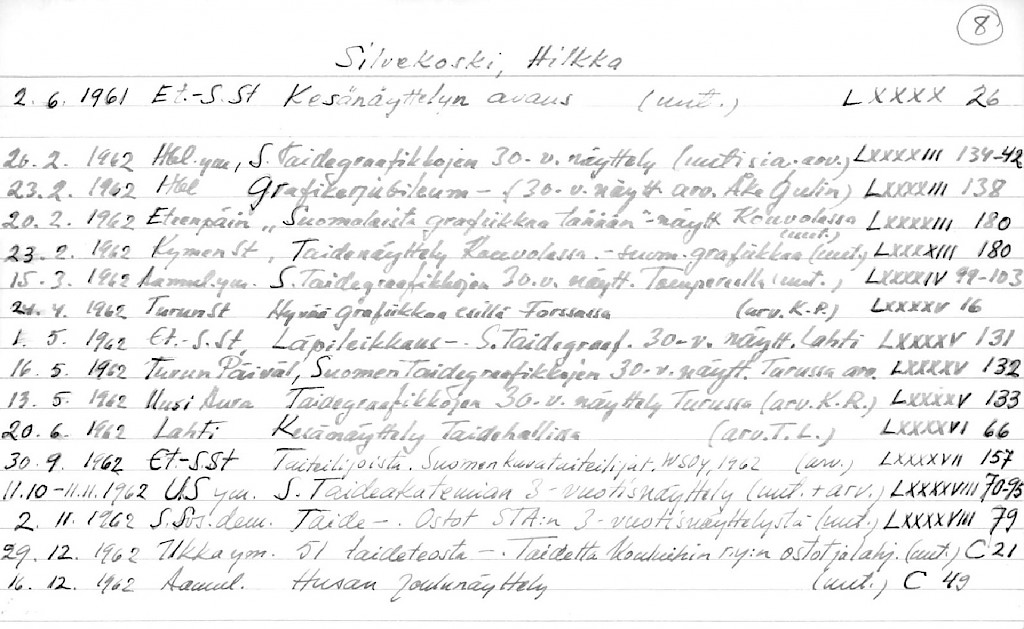 8
Silvekoski, Hilkka
2. 6. 1961 Et.-S.St Kesänäyttelyn avaus (uut.) LXXXX 26
20. 2. 1962 Hbl ym, S. Taidegraafikkojen 30-v. näyttely (uutisia.arv.) LXXXXIII 134-42
23. 2. 1962 Hbl Grafikerjubileum - (30-v. näytt. arv. Åke Gulin) LXXXXIII 138
20. 2. 1962 Eteenpäin „Suomalaista grafiikkaa tänään"-näytt Kouvolassa (uut.) LXXXXIII 180
23. 2. 1962 KymenSt, Taidenäyttely Kouvolassa. - suom. grafiikkaa (uut.) LXXXXIII 180
15. 3. 1962 Aamul.ym. S. Taidegraafikkojen 30.v. näytt. Tampereella (uut.) LXXXXIV 99-103
24. 4. 1962 TurunSt Hyvää grafiikkaa esillä Forssassa (arv. K.P.) LXXXXV 16
1. 5. 1962 Et.-S.St, Läpileikkaus-. S. Taidegraaf. 30-v. näytt. Lahti LXXXXV 131
16. 5. 1962 Turun Päivät, Suomen Taidegraafikkojen 30-v. näytt. Turussa arv. LXXXXV 132
13. 5. 1962 Uusi Aura Taidegraafikkojen 30-v. näyttely Turussa (arv. K.R.) LXXXXV 133
20. 6. 1962 Lahti Kesänäyttely Taidehallissa (arv. T.L.) LXXXXVI 66
30. 9. 1962 Et.-S.St Taiteilijoista. Suomen kuvataiteilijat, WSOY, 1962 (arv.) LXXXXVII 157
11.10-11.11.1962 US ym. S. Taideakatemian 3-vuotisnäyttely (uut. + arv.) LXXXXVIII 70-95
2. 11. 1962 S.Sos.dem. Taide-. Ostot STA:n 3-vuotisnäyttelystä (uut.) LXXXXVIII 79
29. 12. 1962 Ilkka ym. 51 taideteosta -. Taidetta Kouluihin r.y:n ostot ja lahj. (uut.) C 21
16. 12. 1962 Aamul. Husan Joulunäyttely (uut.) C 49